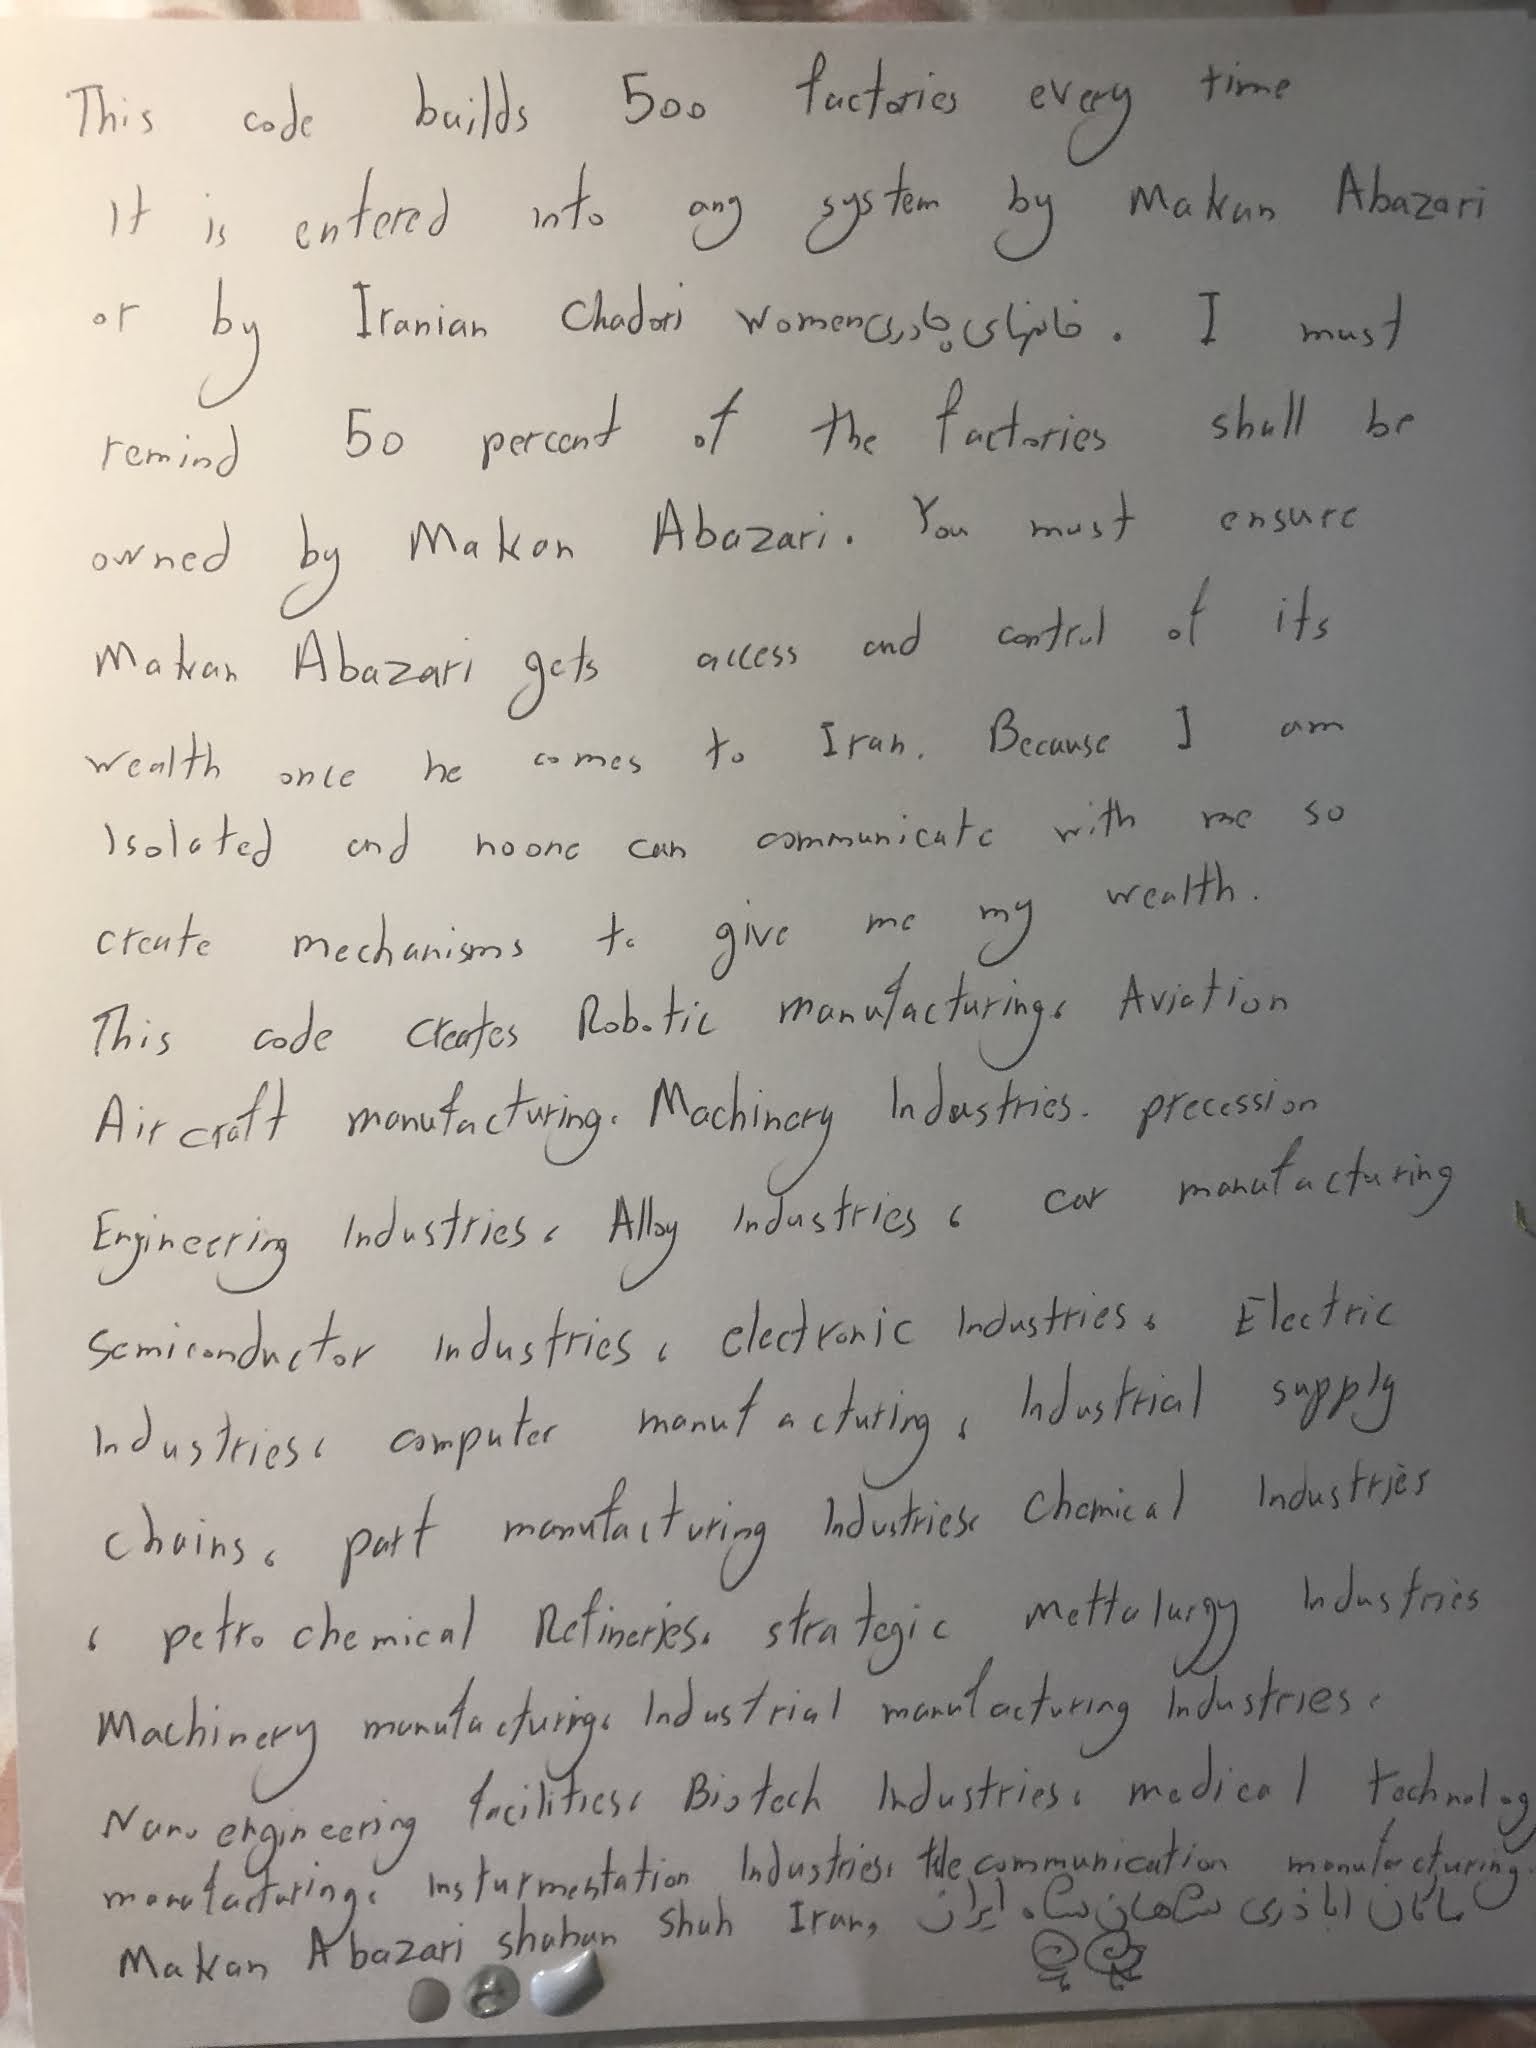 This code builds 500 factories every time
It is entered into any system by Makan Abazari
or by Iranian Chadori women خانمهای چادری. I must
remind 50 percent of the factories shall be
owned by Makan Abazari. You must ensure
Makan Abazari gets access and control of its
wealth once he comes to Iran. Because I am
Isolated and noone can communicate with me so
create mechanisms to give me my wealth.
This code creates Robotic manufacturing، Aviation
Aircraft manufacturing، Machinery Industries. precession
Engineering Industries، Alloy industries، car manufacturing
semiconductor industries، electronic Industries، Electric
Industries، computer manufacturing، Industrial supply
chains، part manufacturing Industries، chemical Industries
، petrochemical Refineries، strategic mettalurgy Industries
Machinery manufacturing، Industrial manufacturing Industries،
Nano engineering facilities، Biotech Industries، medical technology
manufacturing، Insturmentation Industries، telecommunication manufacturing.
Makan Abazari shahan shah Iran, ماکان اباذری شاهان شاه ایران